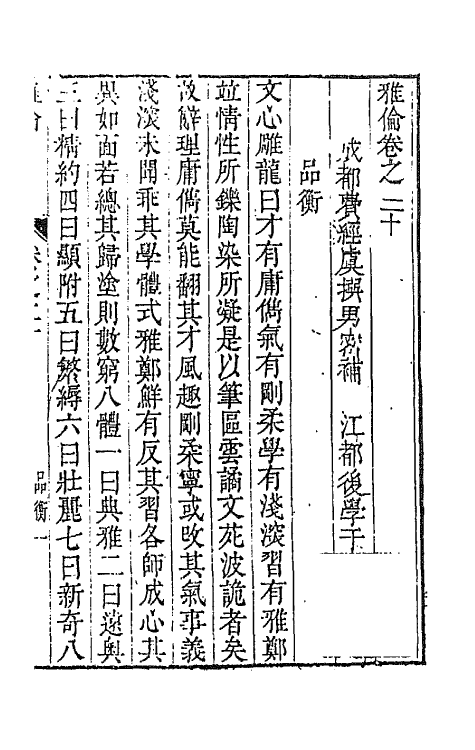 雅倫卷之二十
成都費經虞撰男密補　江都後學于
品衡
文心雕龍曰才有庸儁氣有剛柔學有淺深習有雅鄭
竝情性所鑠陶染所凝是以筆區雲譎文苑波詭者矣
故辭理庸儁莫能翻其才風趣剛柔寧或改其氣事義
淺深未聞乖其學體式雅鄭鮮有反其習各師成心其
異如面若總其歸塗則數窮八體一曰典雅二曰遠奥
三曰精約四曰顯附五曰繁縟六曰壯麗七曰新奇八
品衡一